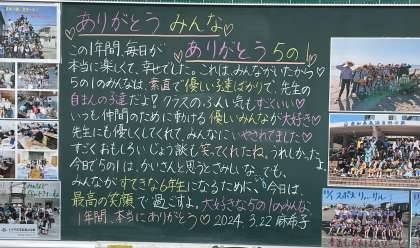 ありがとう みんな
ありがとう5の1
この1年間、毎日が
本当に楽しくて、幸せでした。これは、みんながいたから
5の1のみんなは、素直で優しい子達ばかりで、先生の
自まんの子達だよ!クラスのふん囲気もすごくいい
いつも仲間のために動ける優しいみんなが大好き
先生にも優しくしてくれて、みんなにいやされてました
すごくおもしろいじょう談も笑ってくれたね。うれしかったよ
今日で5の1は、かいさんと思うとさみしいな。でも、
みんながすてきな6年生になるために、今日は、
最高の笑顔で過ごすよ。大好きな5の1のみんな
1年間、本当にありがとう 2024.3.22 麻希子